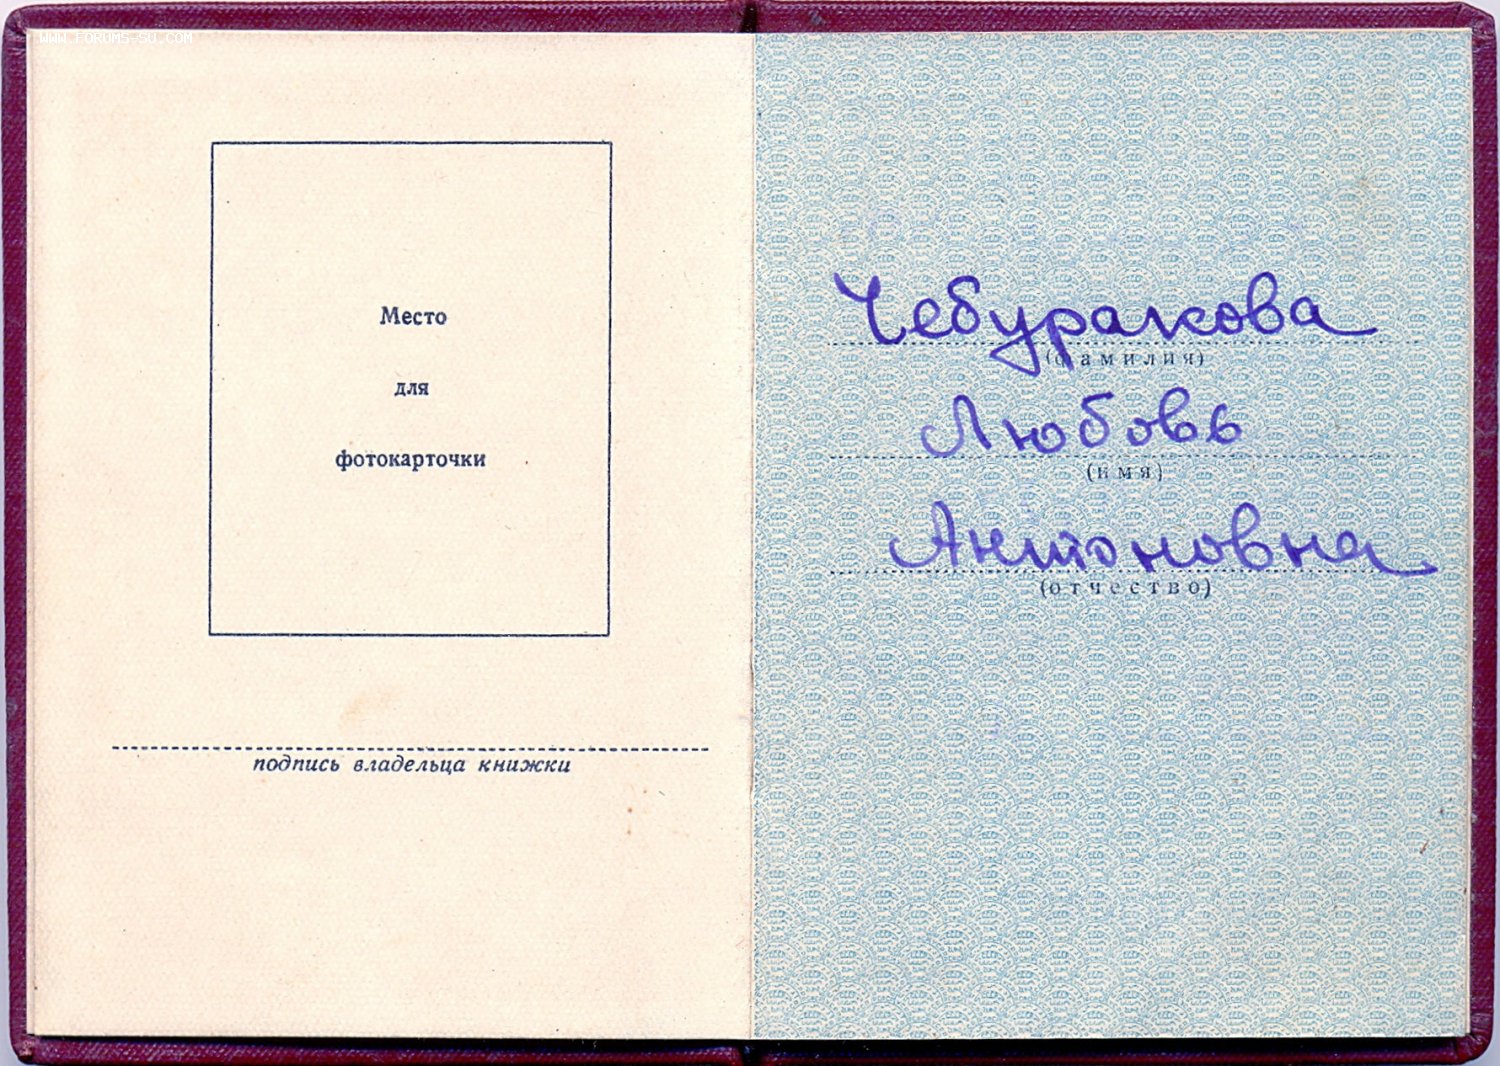 www.forums-su.com
Место
для
фотокарточки
подпись владельца книжки
Чебуракова
(фамилия)
Любовь
(имя)
Антоновна
(отчество)